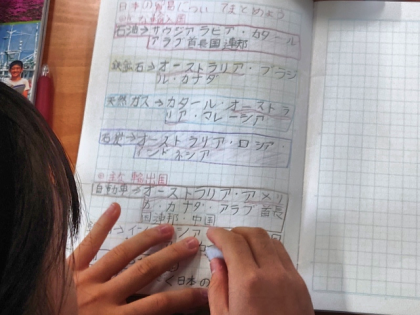 日本の貿易についてまとめよう
主な輸入国
石油→サウジアラビア・カタール
アラブ首長国連邦
鉄鉱石→オーストラリア・ブラジ
ル・カナダ
天然ガス→カタール・オーストラ
リア・マレーシア
石炭→オーストラリア・ロシア・
インドネシア
主な輸出国
自動車→オーストラリア・アメリ
カ・カナダ・アラブ首長
国連邦・中国
日本の